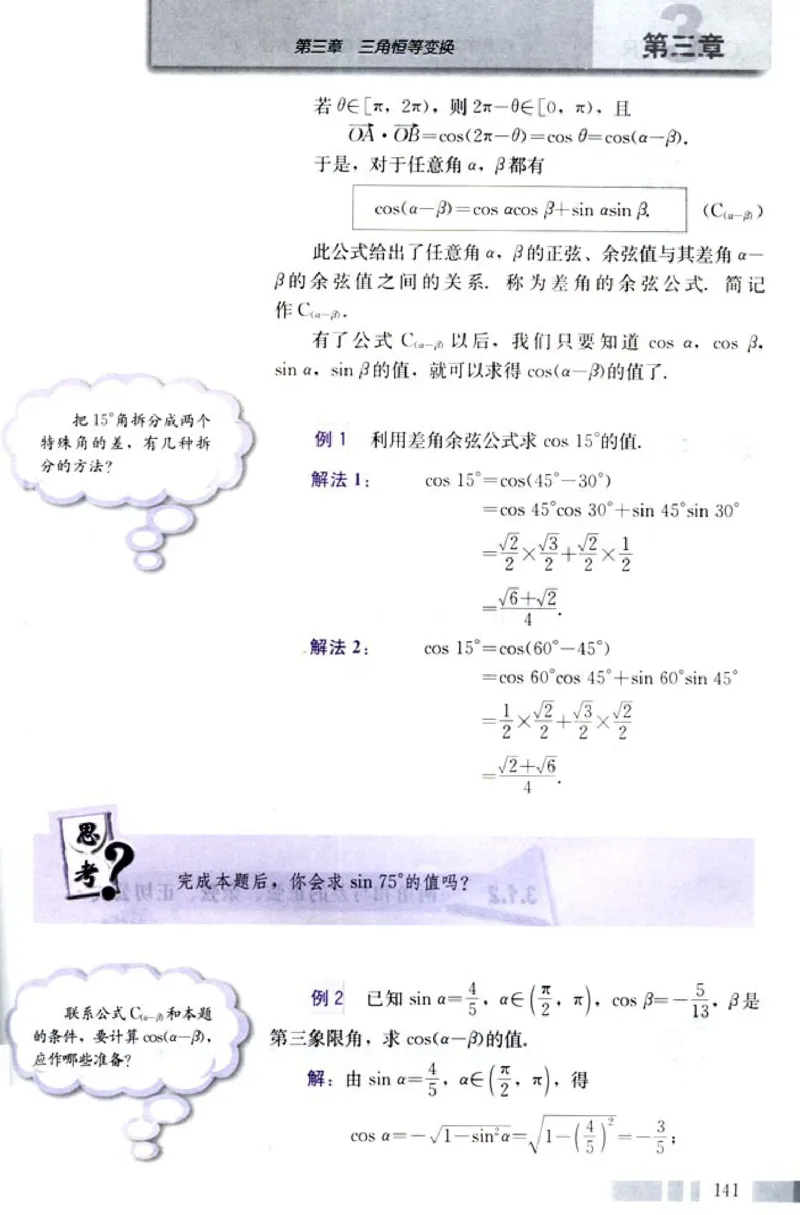 第三章 三角恒等变换
第三章
若 θ∈[π, 2π), 则 2π−θ∈[0, π), 且
OA·OB=cos(2π−θ)=cos θ=cos(α−β).
于是, 对于任意角 α, β都有
cos(α−β)=cos αcos β+sin αsin β. (C(α−β))
此公式给出了任意角 α, β的正弦、余弦值与其差角 α−
β的余弦值之间的关系. 称为差角的余弦公式. 简记
作 C(α−β).
有了公式 C(α−β) 以后, 我们只要知道 cos α, cos β,
sin α, sin β的值, 就可以求得 cos(α−β)的值了.
把 15°角拆分成两个
特殊角的差, 有几种拆
分的方法?
例 1 利用差角余弦公式求 cos 15°的值.
解法 1: cos 15°=cos(45°−30°)
=cos 45°cos 30°+sin 45°sin 30°
=√2/2×√3/2+√2/2×1/2
=(√6+√2)/4.
解法 2: cos 15°=cos(60°−45°)
=cos 60°cos 45°+sin 60°sin 45°
=1/2×√2/2+√3/2×√2/2
=(√2+√6)/4.
思考?
完成本题后, 你会求 sin 75°的值吗?
例 2 已知 sin α=4/5, α∈(π/2, π), cos β=−5/13, β是
第三象限角, 求 cos(α−β)的值.
联系公式 C(α−β)和本题
的条件, 要计算 cos(α−β),
应作哪些准备?
解: 由 sin α=4/5, α∈(π/2, π), 得
cos α=−√(1−sin²α)=√(1−(4/5)²)=−3/5;
141